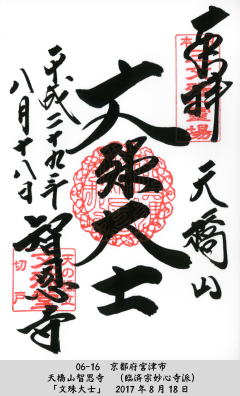 奉拝
天橋山
文殊大士
智恩寺
平成二十九年
八月十八日
切戸
06-16　京都府宮津市
天橋山智恩寺　（臨済宗妙心寺派）
「文殊大士」　2017年8月18日